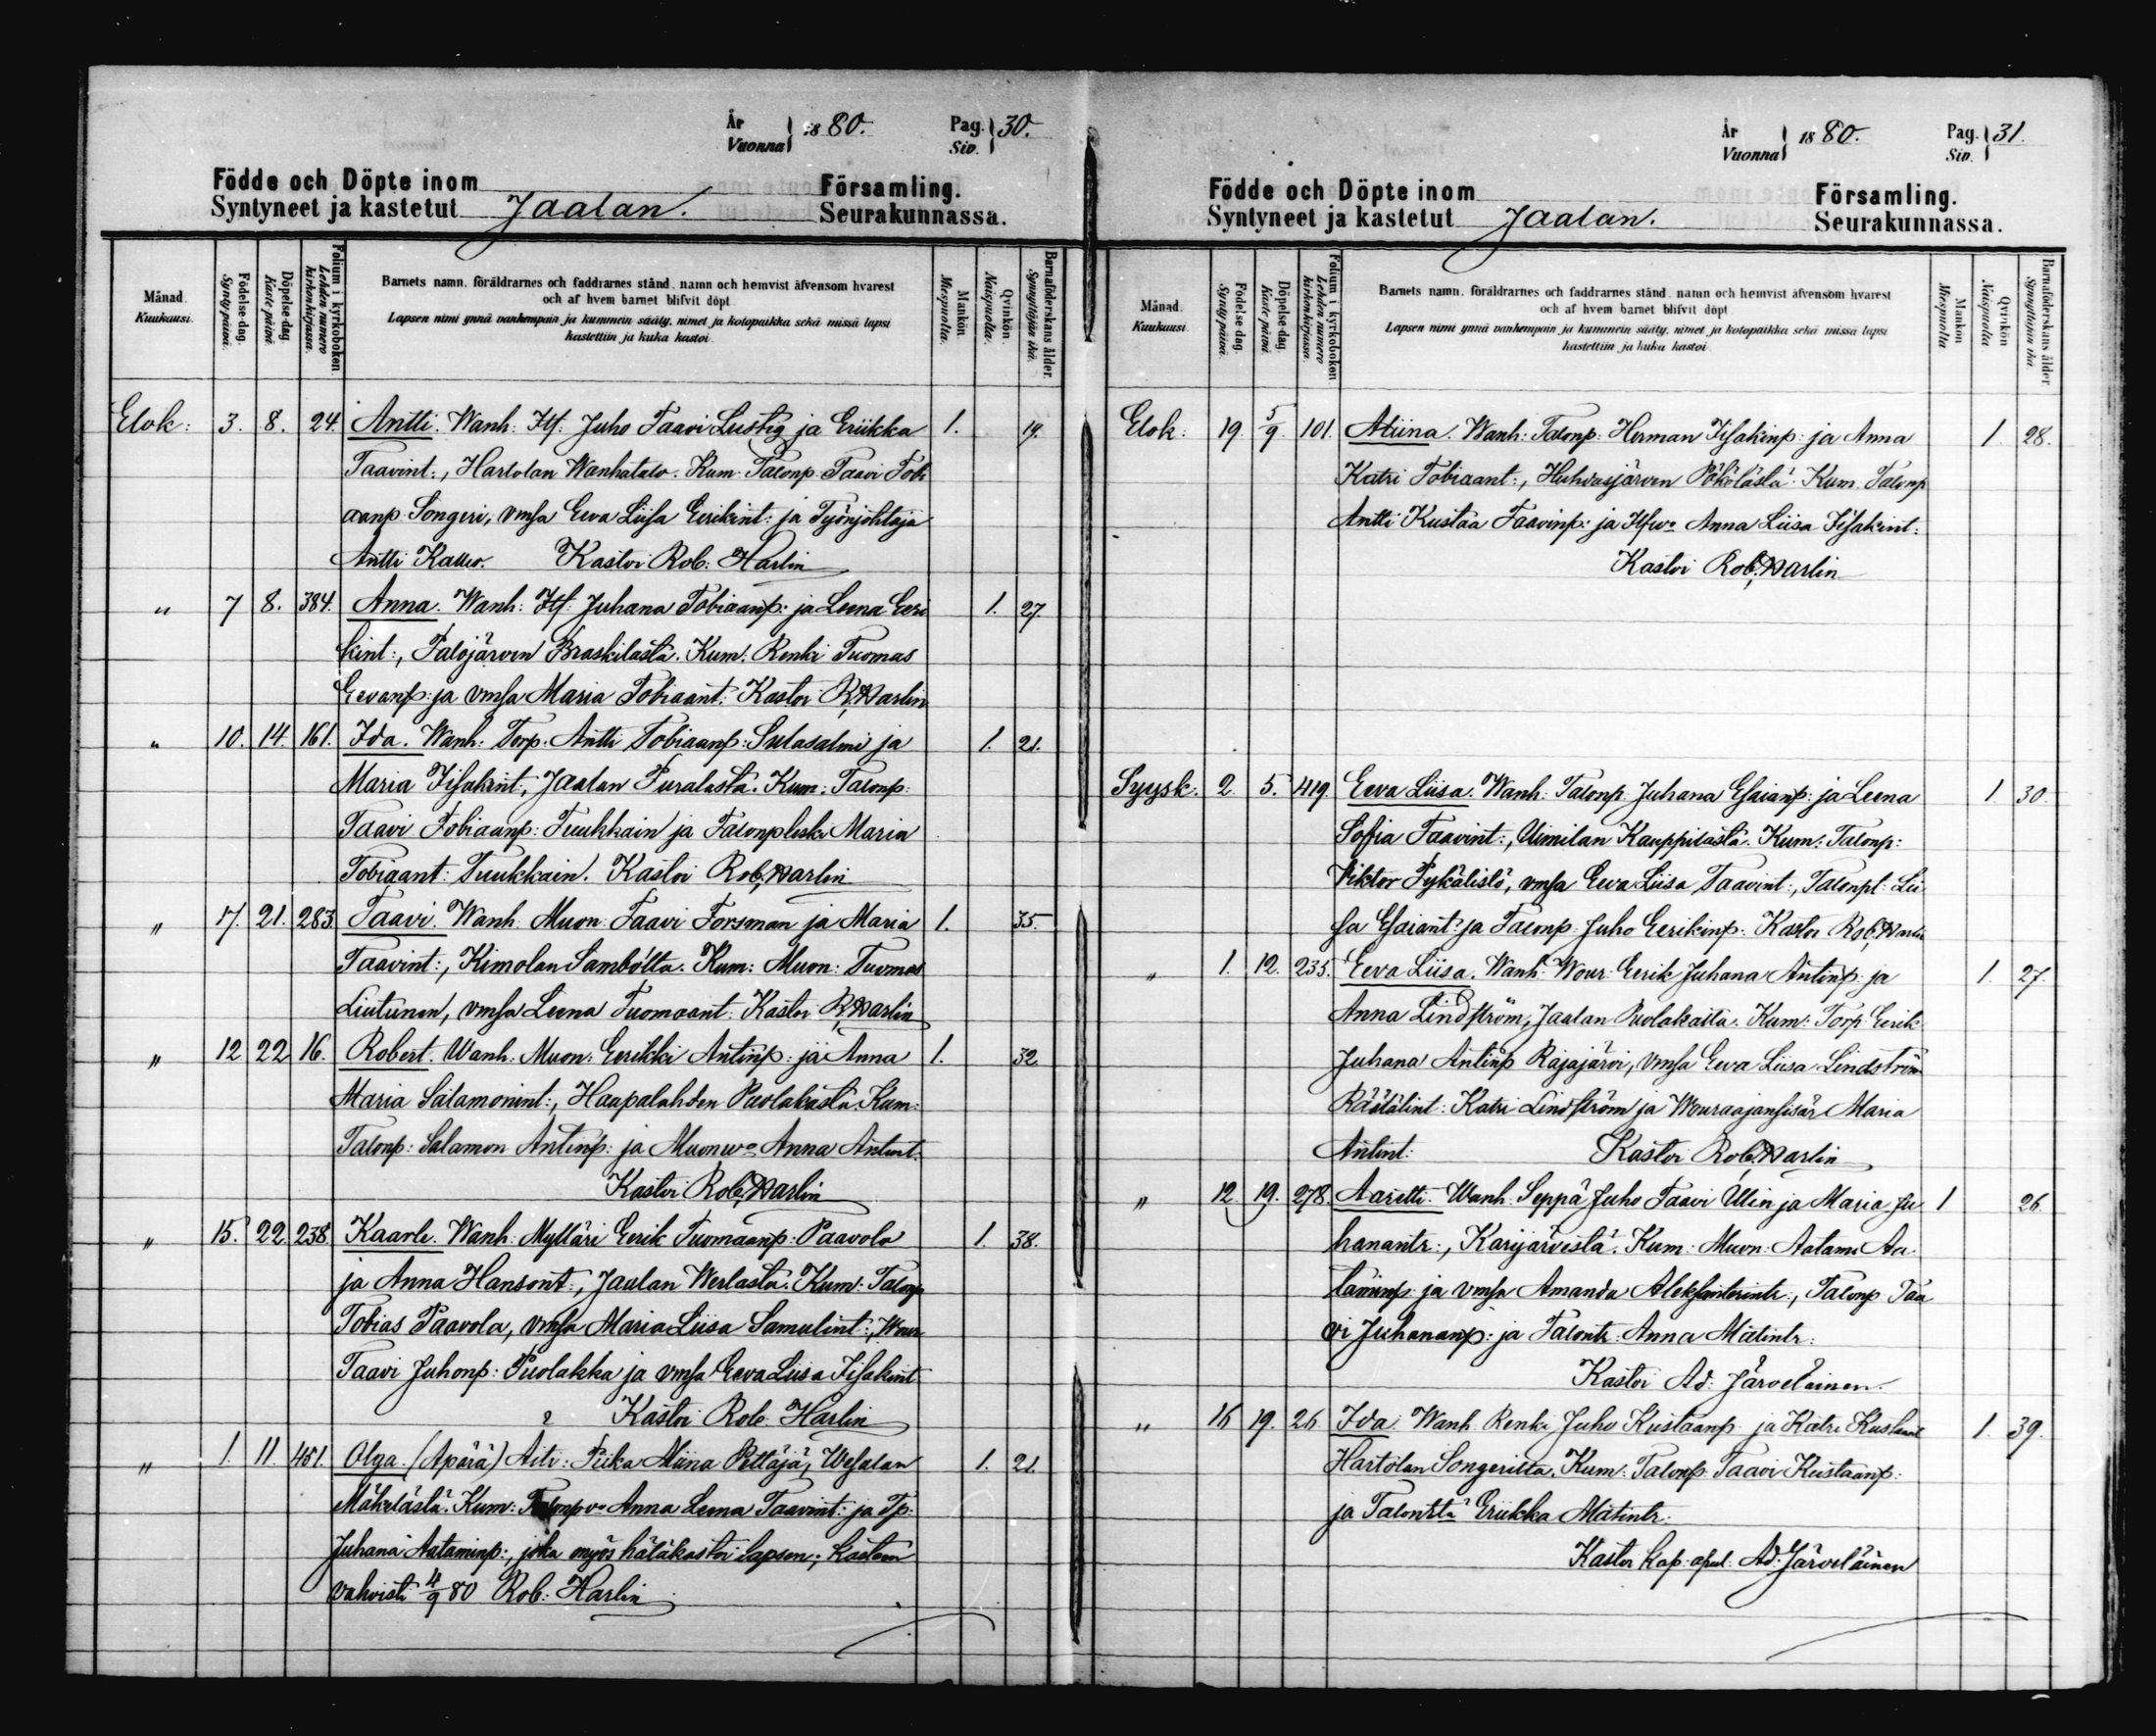 År
Vuonna 1880.
Pag.
Siv. 30.
Födde och Döpte inom
Syntyneet ja kastetut Jaalan.
Församling.
Seurakunnassa.
Månad.
Kuukausi.
Födelse-dag.
Synty-päivä.
Döpelse-dag.
Kaste-päivä.
Folium i kyrkoboken.
Lehden numero kirkonkirjassa.
Barnets namn, föräldrarnes och faddrarnes stånd, namn och hemvist äfvensom hvarest
och af hvem barnet blifvit döpt.
Lapsen nimi ynnä vanhempain ja kummein sääty, nimet ja kotopaikka sekä missä lapsi
kastettiin ja kuka kastoi.
Mankön.
Miespuolta.
Qvinkön.
Naispuolta.
Barnaföderskans ålder.
Synnyttäjän ikä.
Elok: 3. 8. 24. Antti. Wanh: Itf: Juho Taavi Lustig ja Eriikka 1. 19.
Taavint:, Hartolan Wanhatalo. Kum: Talonp. Taavi Tobi
aanp. Songeri, vmsa Eeva Liisa Eerikint: ja Työnjohtaja
Antti Kallio. Kastoi Rob: Harlin
" 7 8. 384. Anna. Wanh: Itf: Juhana Tobiaanp: ja Leena Eeri 1. 27.
kint:, Palojärven Braskilasta. Kum: Renki Tuomas
Eevanp: ja vmsa Maria Tobiaant: Kastoi R. Harlin
" 10. 14. 161. Ida. Wanh: Torp. Antti Tobiaanp: Sulasalmi ja 1. 21.
Maria Iisakint:, Jaalan Puralasta. Kum: Talonp:
Taavi Tobiaanp: Tuukkain ja Talonpleski Maria
Tobiaant: Tuukkain. Kastoi Rob. Harlin
" 17. 21. 283. Taavi. Wanh: Muon: Taavi Forsman ja Maria 1. 35.
Taavint:, Kimolan Sambolta. Kum: Muon: Tuomas
Liutunen, vmsa Leena Tuomaant: Kastoi R. Harlin
" 12 22 16. Robert. Wanh: Muon: Eerikki Antinp: ja Anna 1. 32
Maria Salamonint:, Haapalahden Puolakasta. Kum:
Talonp: Salamon Antinp: ja Muonwo Anna Antint.
Kastoi Rob. Harlin
" 15. 22. 238. Kaarle. Wanh: Mylläri Eerik Tuomaanp: Paavola 1. 38.
ja Anna Hansont:, Jaalan Werlasta. Kum: Talonp
Tobias Paavola, vmsa Maria Liisa Samulint:, Wour
Taavi Juhonp: Puolakka ja vmsa Eeva Liisa Iisakint
Kastoi Rob: Harlin
" 1. 11. 451. Olga. (Äpärä) Äiti: Piika Miina Pettäjä, Wesalan 1. 21.
Mäkelästä. Kum: Talonpvo Anna Leena Taavint: ja Tp:
Juhana Aataminp:, joka myös hätäkastoi lapsen; kasteen
vahvisti 4/9 80 Rob: Harlin
År
Vuonna 1880.
Pag.
Siv. 31.
Födde och Döpte inom
Syntyneet ja kastetut Jaalan.
Församling.
Seurakunnassa.
Månad.
Kuukausi.
Födelse-dag.
Synty-päivä.
Döpelse-dag.
Kaste-päivä.
Folium i kyrkoboken.
Lehden numero kirkonkirjassa.
Barnets namn, föräldrarnes och faddrarnes stånd, namn och hemvist äfvensom hvarest
och af hvem barnet blifvit döpt.
Lapsen nimi ynnä vanhempain ja kummein sääty, nimet ja kotopaikka sekä missä lapsi
kastettiin ja kuka kastoi.
Mankön.
Miespuolta.
Qvinkön.
Naispuolta.
Barnaföderskans ålder.
Synnyttäjän ikä.
Elok: 19 5/9 101. Miina. Wanh: Talonp: Herman Iisakinp: ja Anna 1 28.
Katri Tobiaant:, Huhdasjärven Pökölästä. Kum: Talonp
Antti Kustaa Taavinp: ja Itfwo Anna Liisa Iisakint:
Kastoi Rob. Harlin
Syysk. 2. 5. 419. Eeva Liisa. Wanh: Talonp. Juhana Esaianp: ja Leena 1 30.
Sofia Taavint:, Uimilan Kauppilasta. Kum: Talonp:
Viktor Pykälistö, vmsa Eeva Liisa Taavint:, Talonpt: Lii
sa Esaiant: ja Talonp: Juho Eerikinp: Kastoi Rob. Harlin
" 1. 12. 235. Eeva Liisa. Wanh: Wour: Eerik Juhana Antinp: ja 1. 27.
Anna Lindström, Jaalan Puolakasta. Kum: Torp: Eerik
Juhana Antinp Rajajärvi, vmsa Eeva Liisa Lindström
Räätälint: Katri Lindström ja Wouraajansisär Maria
Antint: Kastoi Rob. Harlin
" 12. 19. 278. Aaretti. Wanh. Seppä Juho Taavi Ulin ja Maria Ju 1 26
hanantr:, Karijärvestä. Kum: Muon: Aatami Aa
taminp: ja vmsa Amanda Aleksanterintr:, Talonp Taa
vi Juhananp: ja Talontr: Anna Matintr:
Kastoi Ad: Järveläinen.
" 16 19. 26 Ida. Wanh. Renki Juho Kustaanp: ja Katri Kustaant 1. 39.
Hartolan Songerilta. Kum: Talonp: Taavi Kustaanp:
ja Eriikka Matintr:
Kastoi kap: apul: Ad: Järveläinen